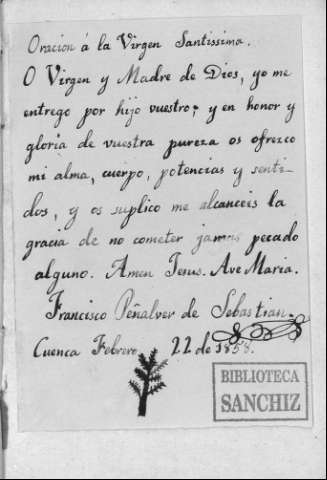 Oracion á la Virgen Santissima.
O Virgen y Madre de Dios, yo me
entrego por hijo vuestro; y en honor y
gloria de vuestra pureza os ofrezco
mi alma, cuerpo, potencias y senti-
dos, y os suplico me alcanceis la
gracia de no cometer jamas pecado
alguno. Amen Jesus. Ave Maria.
Francisco Peñalver de Sebastian.
Cuenca Febrero, 22 de 1858.
BIBLIOTECA
SANCHIZ